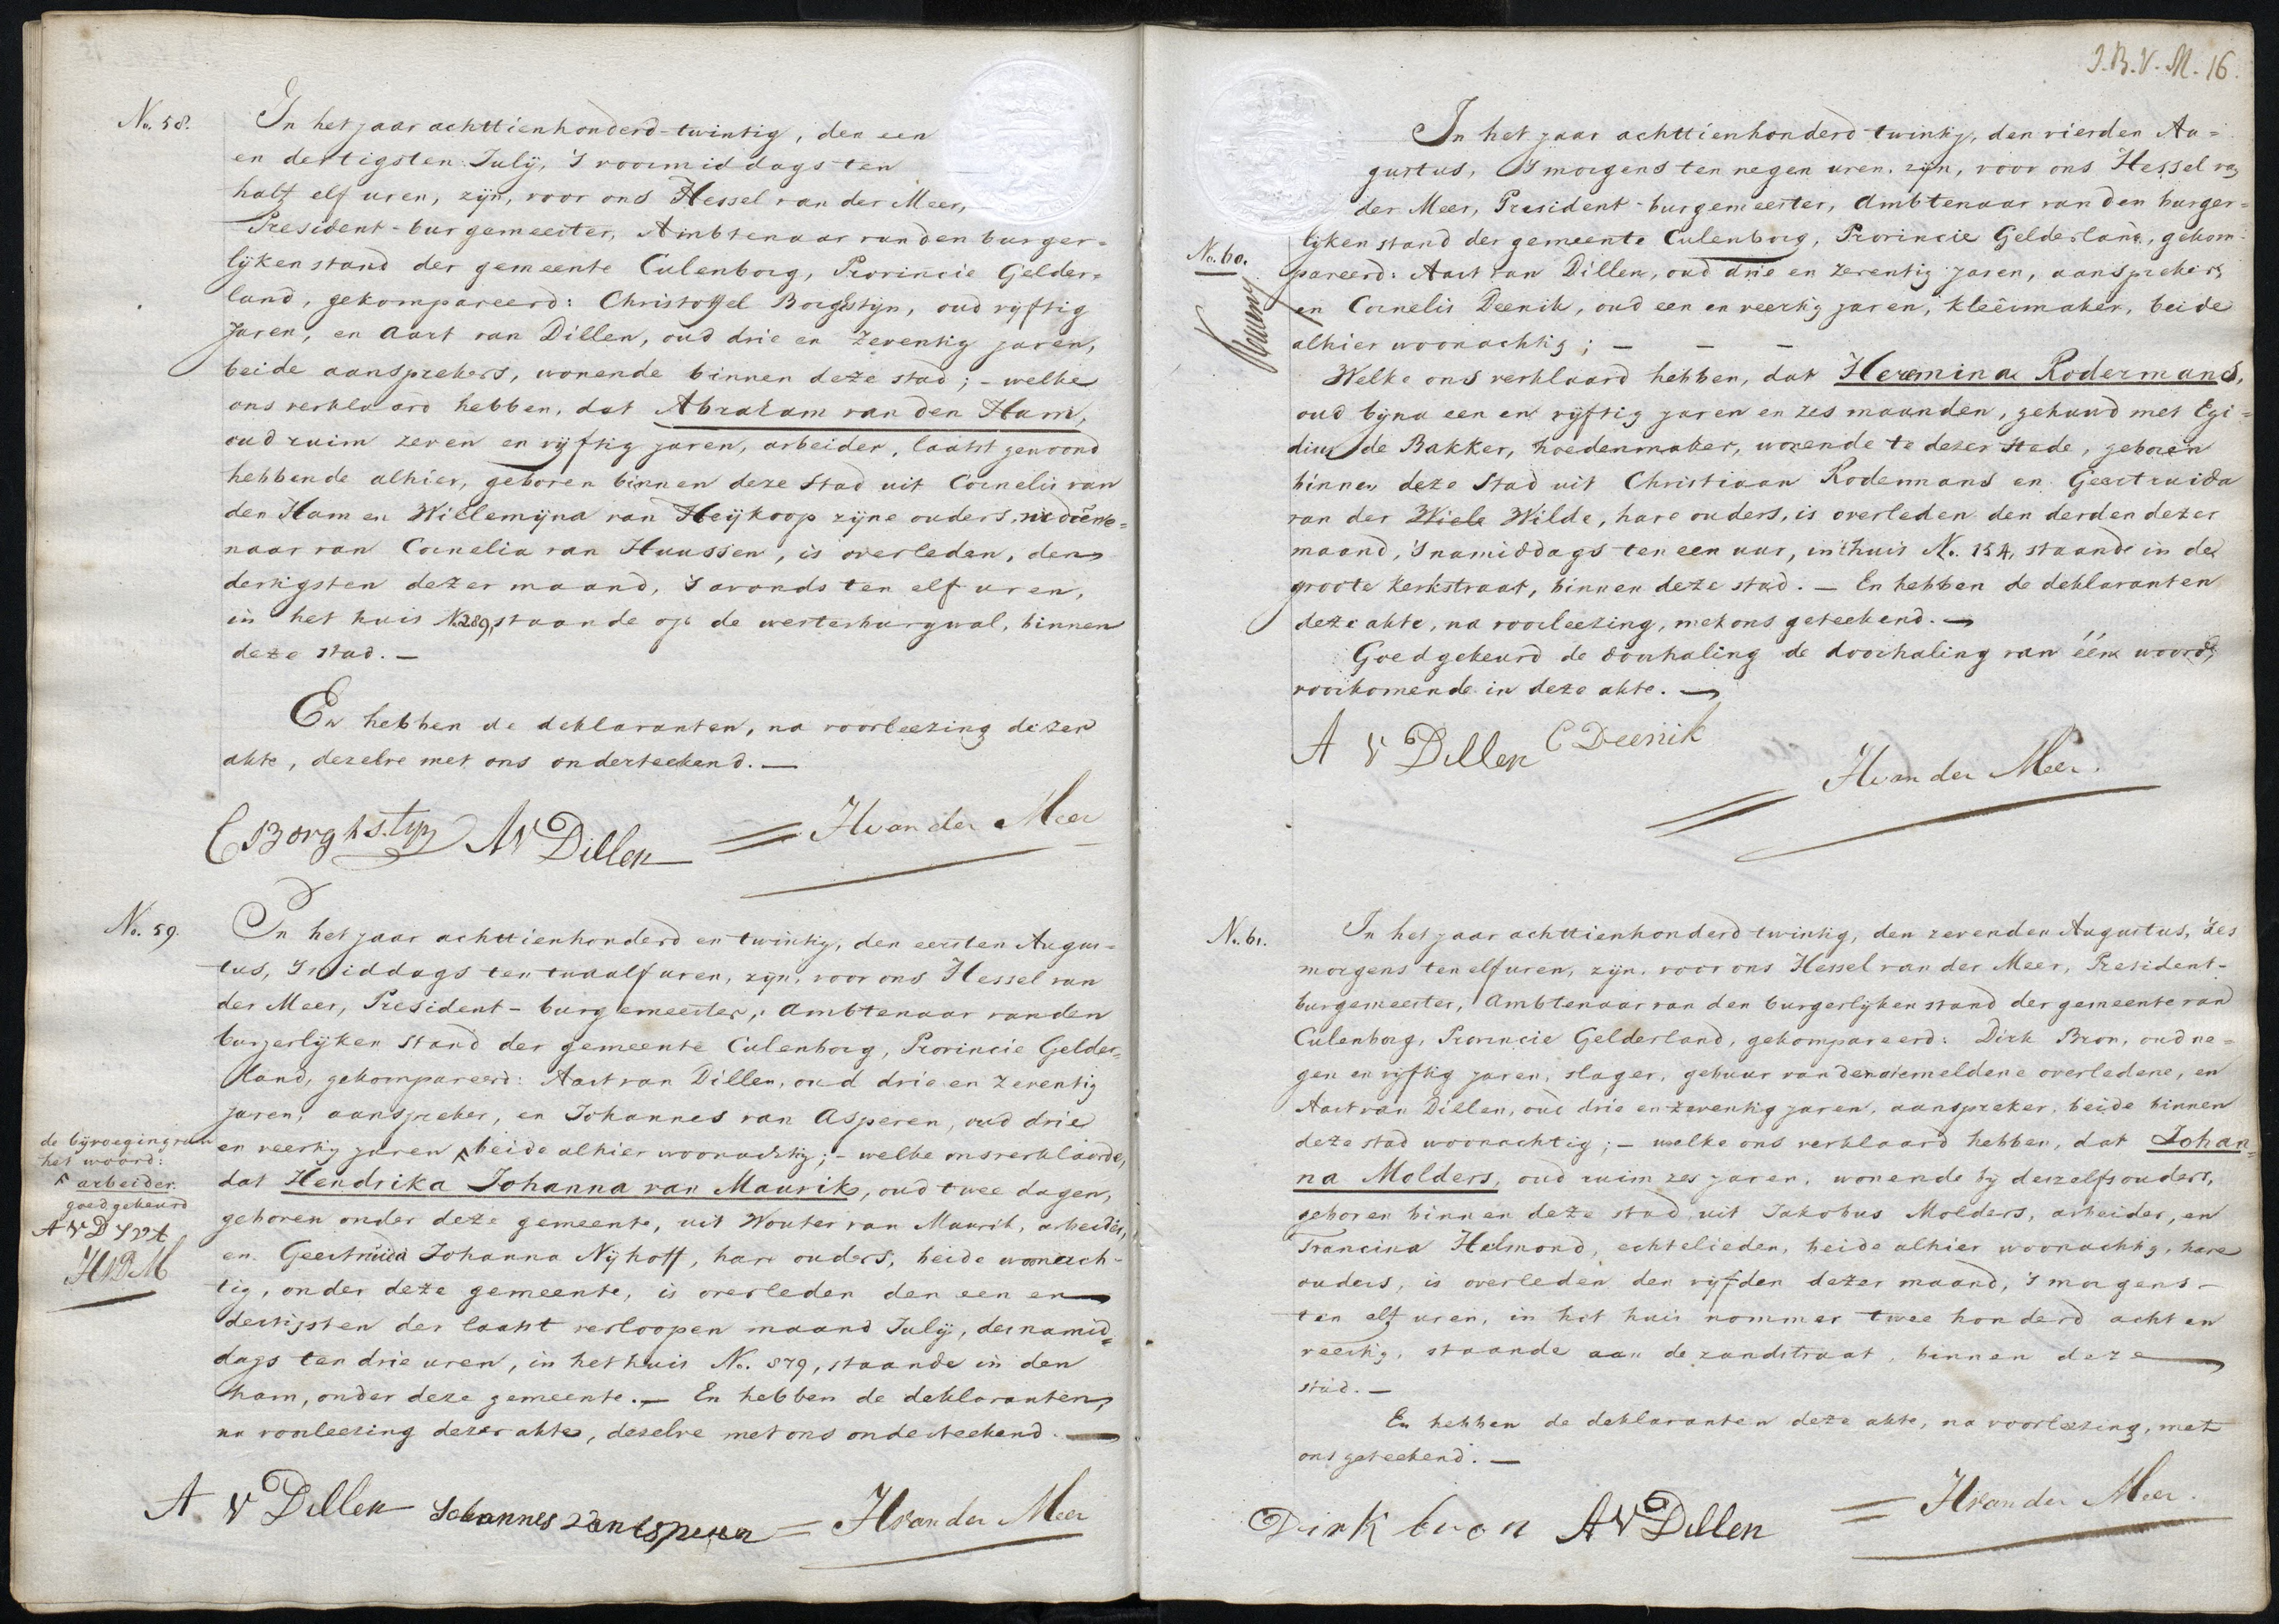 No. 58.
In het jaar achttienhonderd-twintig, den een
en dertigsten July, 's voormiddags ten
half elf uren, zyn, voor ons Hessel van der Meer,
President-burgemeester, Ambtenaar van den burger=
lyken stand der gemeente Culenborg, Provincie Gelder=
land, gekompareerd: Christoffel Borghstyn, oud vyftig
Jaren, en Aart van Dillen, oud drie en zeventig jaren,
beide aansprekers, wonende binnen deze stad; - welke
ons verklaard hebben, dat Abraham van den Ham,
oud ruim zeven en vyftig jaren, arbeider, laatst gewoond
hebbende alhier, geboren binnen deze stad uit Cornelis van
den Ham en Willemyna van Heykoop zyne ouders,
naar van Cornelia van Haussen, is overleden, den
dertigsten dezer maand, 's avonds ten elf uren,
in het huis N.289, staande op de westerburgwal, binnen
deze stad. —
En hebben de deklaranten, na voorleezing dezer
akte, dezelve met ons onderteekend. —
C Borghstyn AV Dillen = Hvan der Meer
No. 59.
In het jaar achttienhonderd en twintig, den eersten Augus-
tus, 's middags ten twaalf uren, zyn, voor ons Hessel van
der Meer, President-burgemeester, Ambtenaar van den
burgerlyken stand der gemeente Culenborg, Provincie Gelder=
land, gekompareerd: Aart van Dillen, oud drie en zeventig
jaren, aanspreker, en Johannes van Asperen, oud drie
en veertig jaren ^ beide alhier woonachtig; - welke ons verklaarde,
dat Hendrika Johanna van Maurik, oud twee dagen,
geboren onder deze gemeente, uit Wouter van Maurik, arbeider,
en Geertruida Johanna Nyhoff, hare ouders, beide woonach-
tig, onder deze gemeente, is overleden den een en
dertigsten der laatst verloopen maand July, des namid=
dags ten drie uren, in het huis No. 579, staande in den
ham, onder deze gemeente. — En hebben de deklaranten,
na voorleezing dezer akte, dezelve met ons onderteekend. —
de byvoeging van
het woord:
^ arbeider.
goedgekeurd
A V D J V A
HVDM
A V Dillen Johannes van Asperen = Hvan der Meer
J.B.V.M. 16.
In het jaar achttienhonderd twintig, den vierden Au=
gustus, 's morgens ten negen uren, zyn, voor ons Hessel van
der Meer, President-burgemeester, Ambtenaar van den burger=
lyken stand der gemeente Culenborg, Provincie Gelderland, gekom-
No. 60.
pareerd: Aart van Dillen, oud drie en zeventig jaren, aanspreker,
en Cornelis Deenik, oud een en veertig jaren, kleêrmaker, beide
alhier woonachtig; — — —
Welke ons verklaard hebben, dat Heremina Rodermans,
oud byna een en vyftig jaren en zes maanden, gehuwd met Egi=
dius de Bakker, hoedenmaker, wonende te dezer stede, geboren
binnen deze stad uit Christiaan Rodermans en Geertruida
van der Wiele Wilde, hare ouders, is overleden den derden dezer
maand, 's namiddags ten een uur, in 't huis N. 154, staande in de
groote kerkstraat, binnen deze stad. — En hebben de deklaranten
deze akte, na voorleezing, met ons geteekend. —
Goedgekeurd de doorhaling de doorhaling van één woord,
voorkomende in deze akte. —
A V Dillen C Deenik
Hvan der Meer.
No. 61.
In het jaar achttienhonderd twintig, den zevenden Augustus, 'des
morgens ten elf uren, zyn, voor ons Hessel van der Meer, President-
burgemeester, Ambtenaar van den burgerlyken stand der gemeente van
Culenborg, Provincie Gelderland, gekompareerd: Dirk Bron, oud ne=
gen en vyftig jaren, slager, gebuur van den natemeldene overledene, en
Aart van Dillen, oud drie en zeventig jaren, aanspreker, beide binnen
deze stad woonachtig; - welke ons verklaard hebben, dat Johan=
na Molders, oud ruim zes jaren, wonende by deszelfs ouders,
geboren binnen deze stad uit Jakobus Molders, arbeider, en
Francina Helmond, echtelieden, beide alhier woonachtig, hare
ouders, is overleden den vyfden dezer maand, 's morgens -
ten elf uren, in het huis nommer twee honderd acht en
veertig, staande aan de zandstraat, binnen deze
stad. —
En hebben de deklaranten deze akte, na voorleezing, met
ons geteekend. —
Dirk bron AV Dillen = Hvan der Meer.